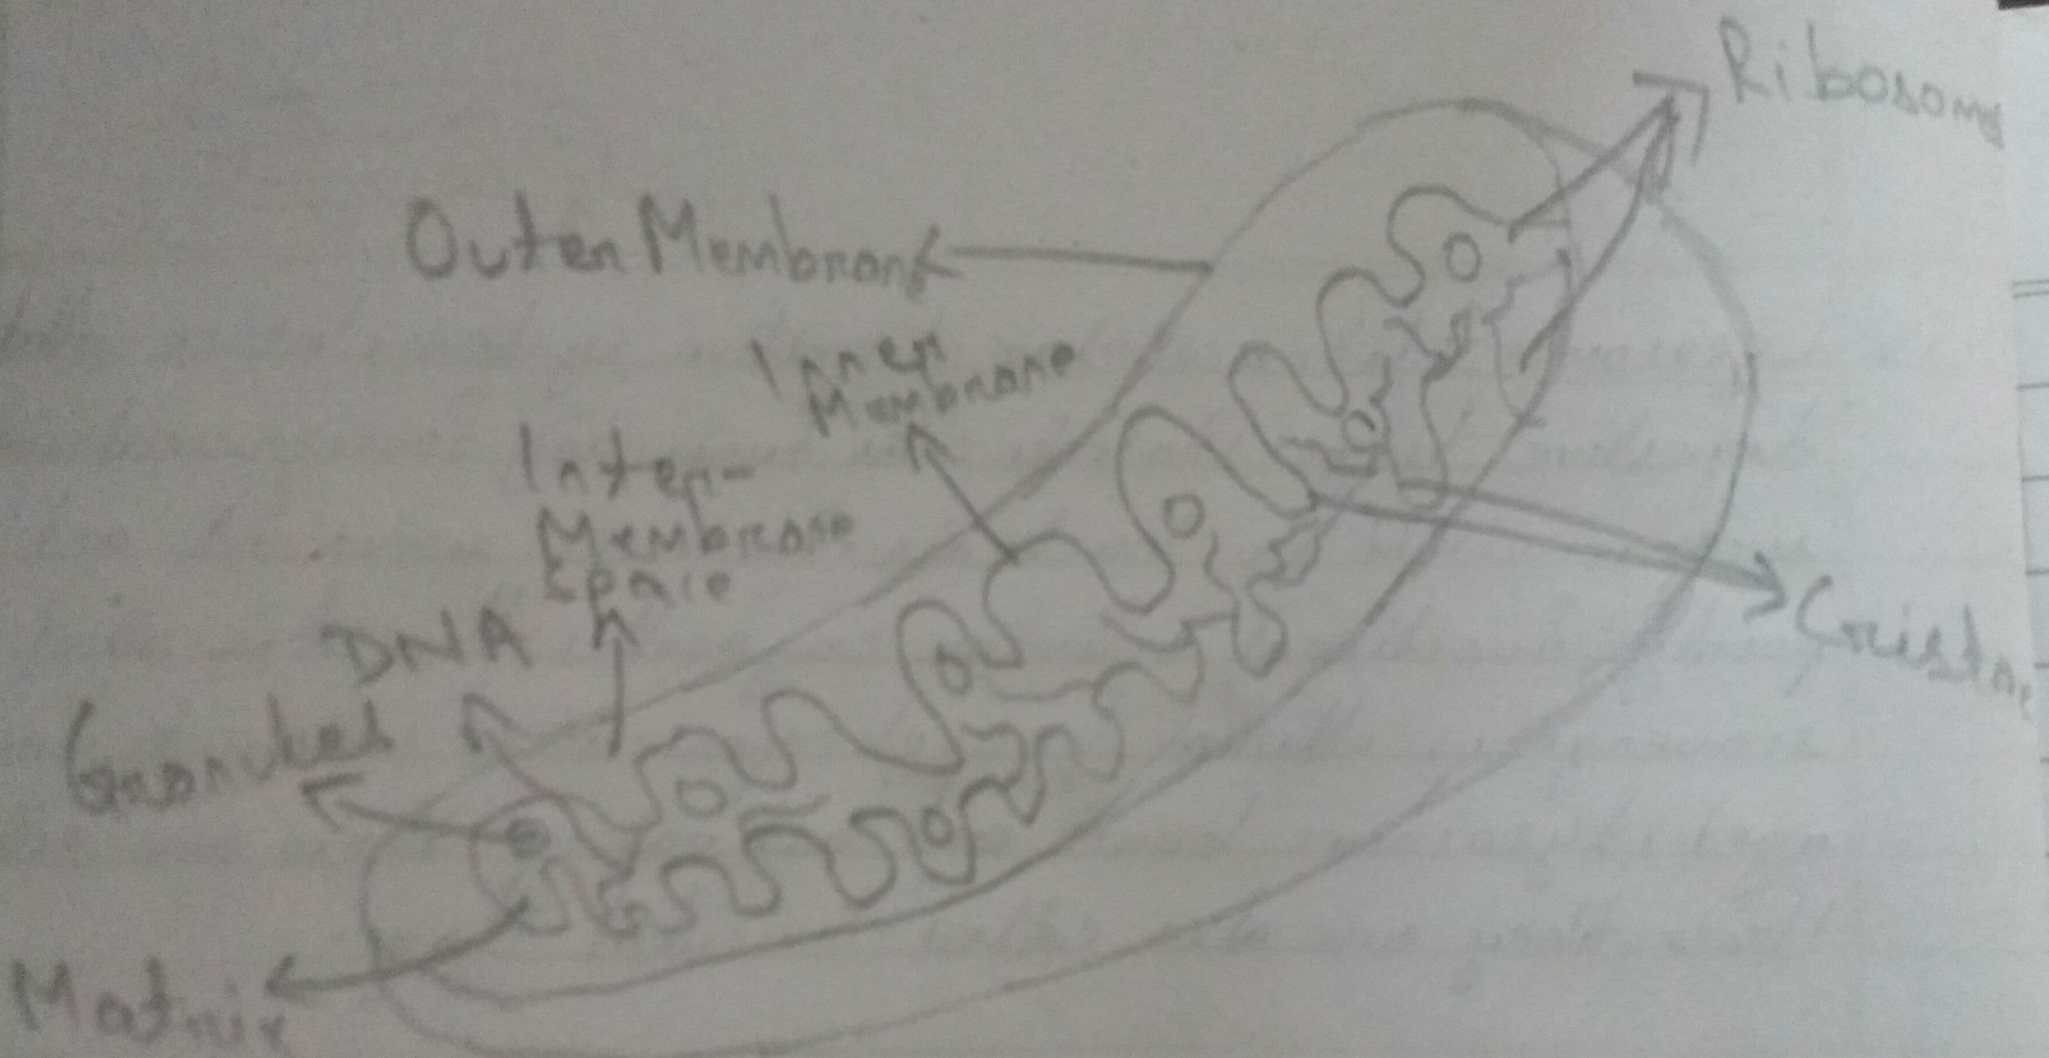 Ribosome
Outer Membrane
Inner
Membrane
Inter-
Membrane
Space
DNA
Cristae
Granules
Matrix